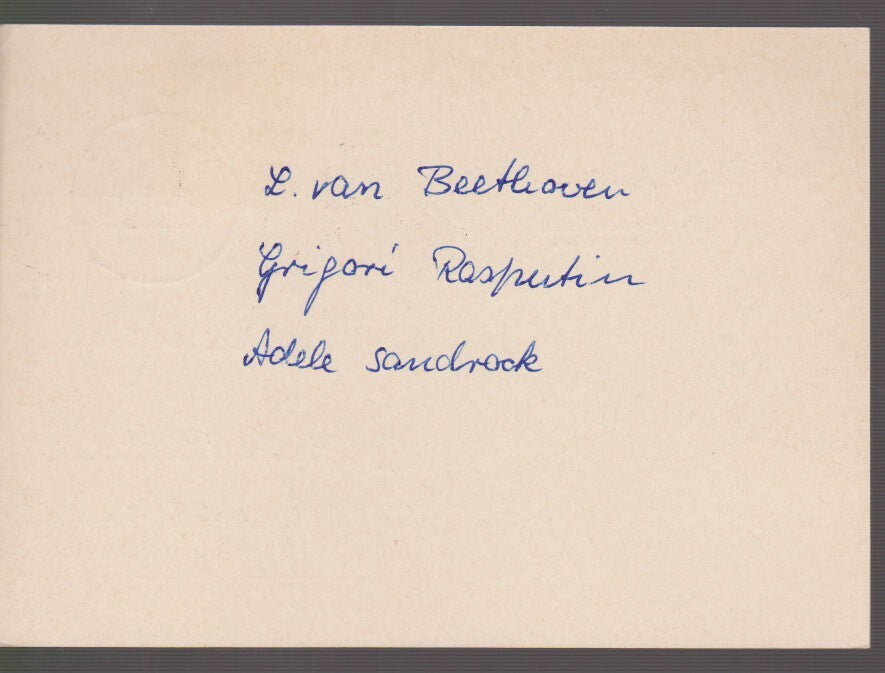 L. van Beethoven
Grigori Rasputin
Adele Sandrock